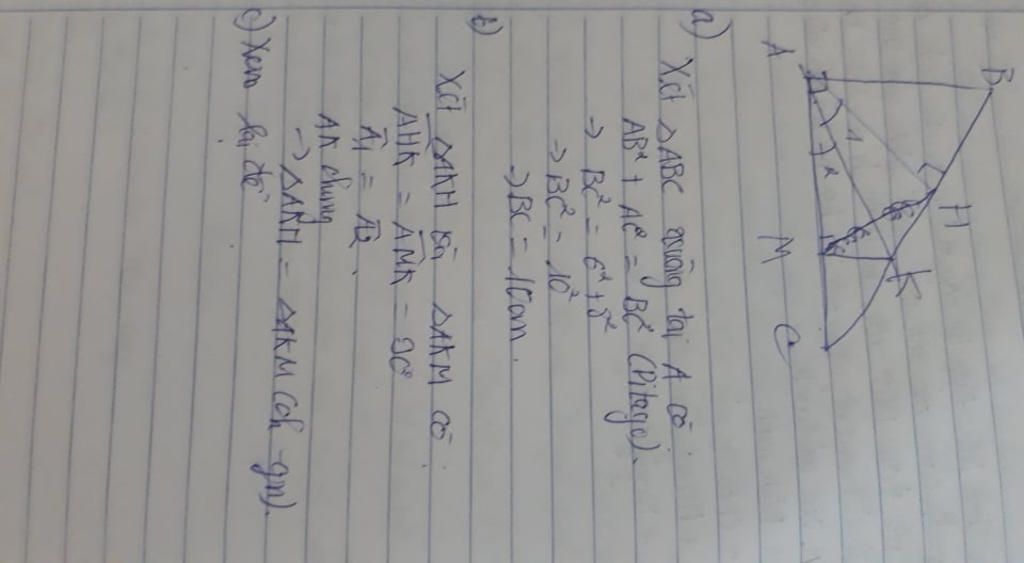 B
A
H
K
M
C
1
2
a) Xét △ABC vuông tại A có
AB² + AC² = BC² (Pitago).
→ BC² = 6² + 8²
→ BC² = 10²
→ BC = 10cm.
b) Xét △AKH và △AKM có
AHK = AMK = 90°
A1 = A2
AK chung
→ △AKH = △AKM (ch - gn).
c) Xem lại đề